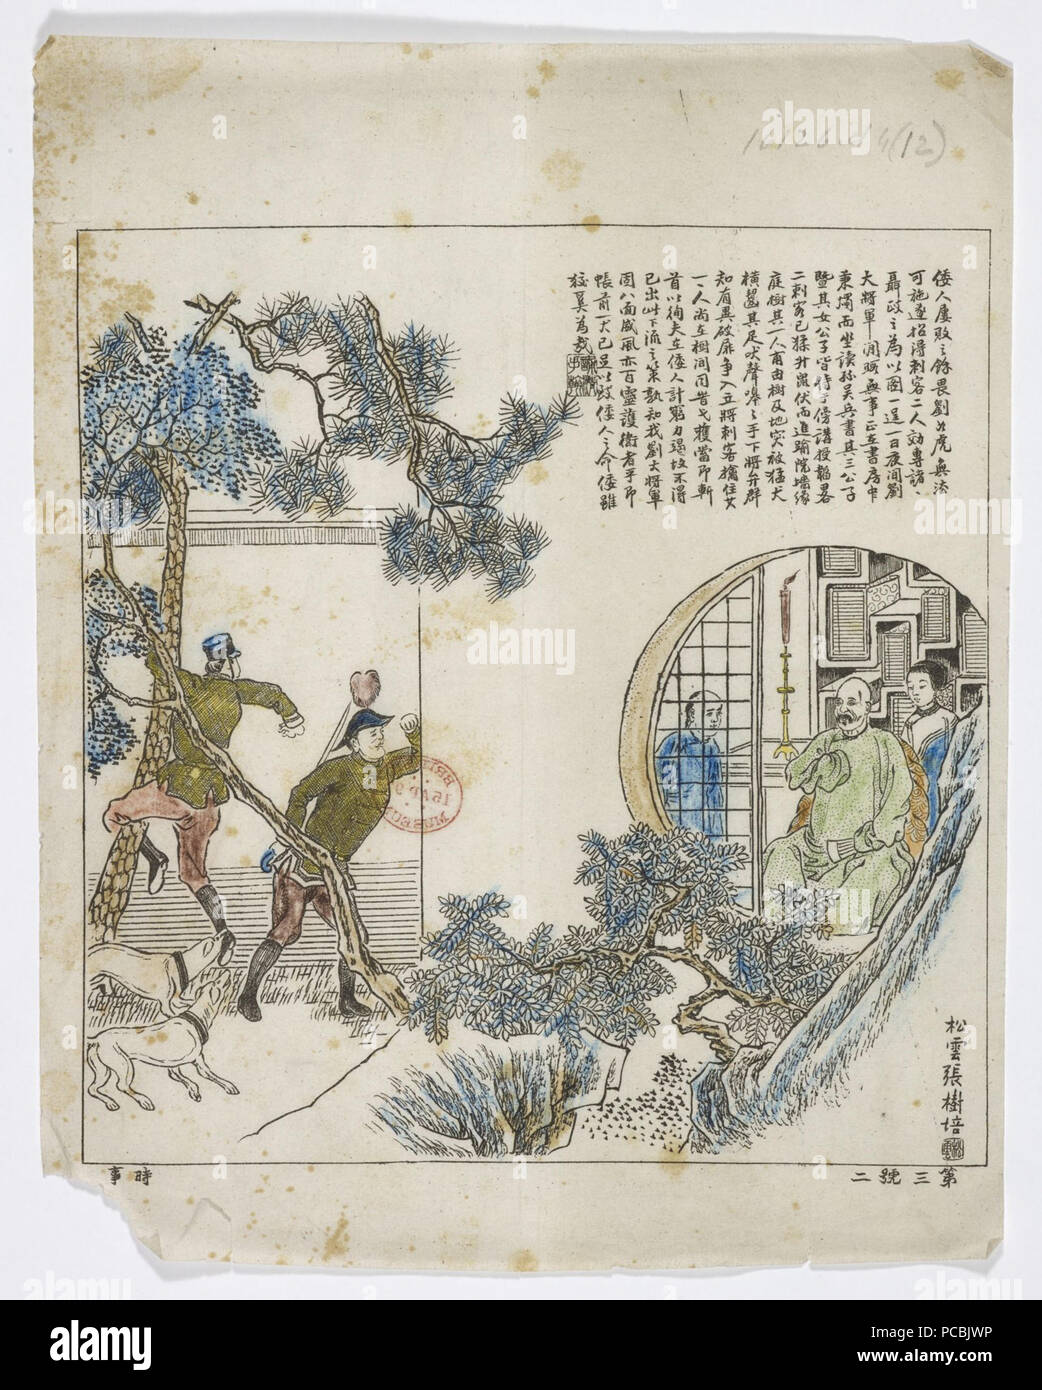 倭人屢敗之餘畏劉如虎無法
可施遂招得刺客二人効專諸、
聶政之為以圖一逞一日夜間劉
大將軍閒暇無事正在書房中
秉燭而坐讀孫吳兵書其三公子
暨其女公子皆侍於傍講授韜畧
二刺客已猱升鼠伏而進踰院墻緣
庭樹其一人甫由樹及地突被猛犬
橫嚙其足吠聲嘷嘷手下將弁群
知有異破扉爭入立將刺客擒住又
一人尚在樹間同皆弋獲當即斬
首以徇夫在倭人計窮力竭故不得
已出此下流之策孰知我劉大將軍
固八面威風亦百靈護衛者乎即
帳前一犬已足以致倭人之命倭雖
狡奚為哉
松雲張樹培
第三號二
時事
(12)
BRIT
MUSEUM
alamy
Image ID: PCBJWP
www.alamy.com